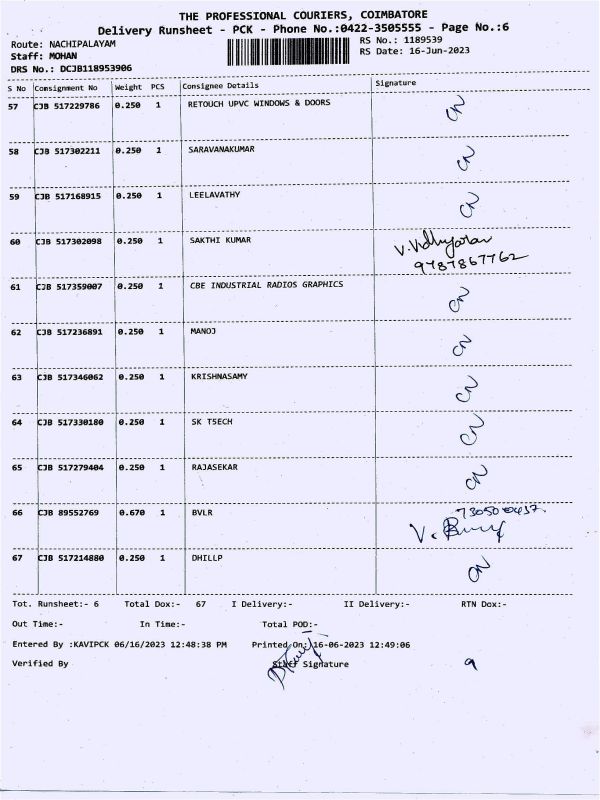 THE PROFESSIONAL COURIERS, COIMBATORE
Delivery Runsheet - PCK - Phone No.:0422-3505555 - Page No.:6
Route: NACHIPALAYAM RS No.: 1189539
Staff: MOHAN RS Date: 16-Jun-2023
DRS No.: DCJB118953906
S No Consignment No Weight PCS Consignee Details Signature
57 CJB 517229786 0.250 1 RETOUCH UPVC WINDOWS & DOORS CN
58 CJB 517302211 0.250 1 SARAVANAKUMAR CN
59 CJB 517168915 0.250 1 LEELAVATHY CN
60 CJB 517302098 0.250 1 SAKTHI KUMAR
9787867762
61 CJB 517359007 0.250 1 CBE INDUSTRIAL RADIOS GRAPHICS CN
62 CJB 517236891 0.250 1 MANOJ CN
63 CJB 517346062 0.250 1 KRISHNASAMY CN
64 CJB 517330180 0.250 1 SK TSECH CN
65 CJB 517279404 0.250 1 RAJASEKAR CN
66 CJB 89552769 0.670 1 BVLR
67 CJB 517214880 0.250 1 DHILLP CN
Tot. Runsheet:- 6 Total Dox:- 67 I Delivery:- II Delivery:- RTN Dox:-
Out Time:- In Time:- Total POD:-
Entered By :KAVIPCK 06/16/2023 12:48:38 PM Printed On: 16-06-2023 12:49:06
Verified By Staff Signature 9